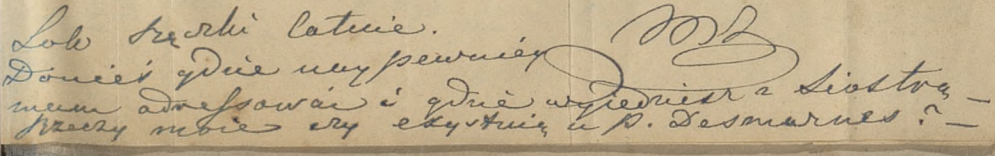 Lok szęczki latnie.
Donieś gdzie nay pewniéy
mam adressować i gdzie wyjedziesz z Siostrą —
Rzeczy moie czy exystuią u P. Desmarnes? —